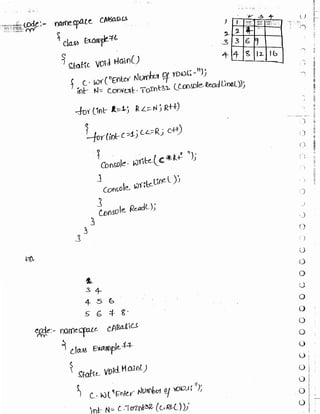 code:- namespace CABasics
{
class Example76
{
Static Void Main()
{
C.Wr("Enter Number of rows:-");
int N= Convert.ToInt32 (Console.ReadLine());
for (int R=1; R<=N; R++)
{
for (int C=1; C<=R; C++)
{
Console.Write(C*R+" ");
}
Console.WriteLine();
}
Console.Read();
}
}
}
1
2 4
3 6 9
4 8 12 16
2
3 4
4 5 6
5 6 7 8
code:- namespace CABasics
{
class Example77
{
Static Void Main()
{
C.W("Enter Number of rows:");
int N= C.ToInt32 (C.RL());